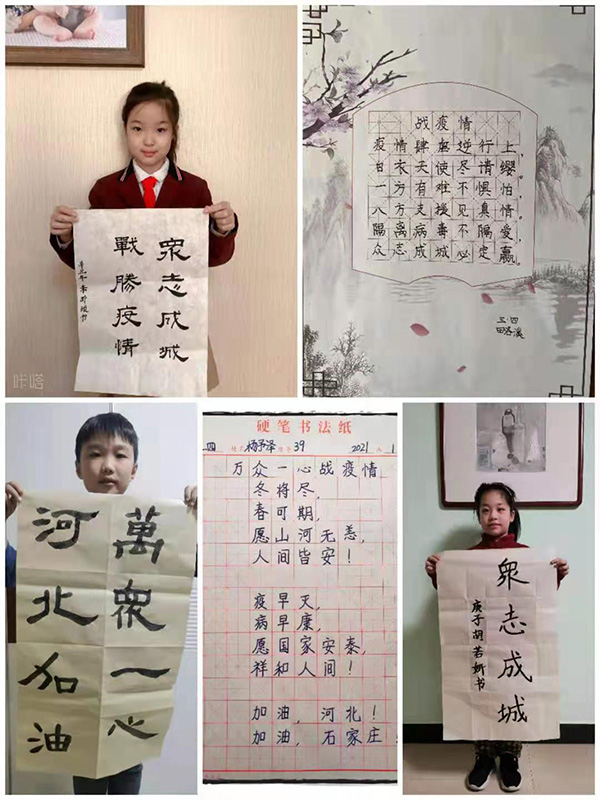 衆志成城
戰勝疫情
咔嗒
战疫情
疫情肆虐逆行上，
白衣天使尽请缨。
一方有难不惧怕，
八方支援见真情。
隔离病毒不隔爱，
众志成城必定赢。
三·四
萬衆一心
河北加油
硬笔书法纸
四 杨予泽 39 2021 1
万众一心战疫情
冬将尽，
春可期，
愿山河无恙，
人间皆安！
疫早灭，
病早康，
愿国家安泰，
祥和人间！
加油，河北！
加油，石家庄！
衆志成城
庚子胡若书